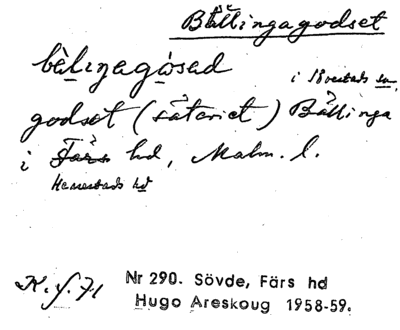 Bållingagodset
bèlıŋagósad
i Sövestads sn,
godset (säteriet) Bållinga
i Färs hd, Malm. l.
Herrestads hd
K. f. 71
Nr 290. Sövde, Färs hd
Hugo Areskoug 1958-59.